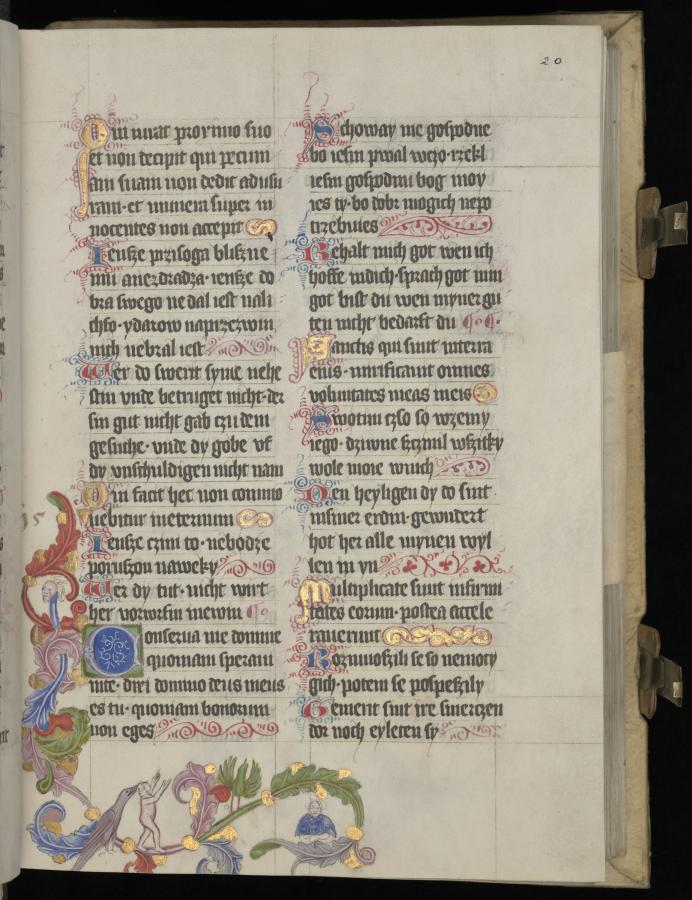 20
Qui iurat proximo suo
et non decipit qui pecuni
am suam non dedit ad usu
ram · et munera super in
nocentes non accepit
Iensze przisoga bliszne
mu anezdradza · iensze do
bra swego ne dal iest na li
chfo · y darow naprzezwin
nich ne bral iest
Wer do swerit syme nehe
stin vnde betruget nicht · der
sin gut nicht gab czu dem
gesuche · vnde dy gobe vf
dy vnschuldigen nicht nam
Qui facit hec non commo
uebitur in eternum
Iensze czini to · nebodze
poruszon naweky
Wer dy tut · nicht wirt
her vorworfin in ewin
15
Conserua me domine
quoniam speraui
in te · dixi domino deus meus
es tu · quoniam bonorum
non eges
Schoway me gospodne
bo iesm pwal wczo · rzekl
iesm gospodnu bog moy
ies ty · bo dobr mogich nepo
trzebuies
Behalt mich got wen ich
hoffe in dich · sprach got min
got bist du wen myner gu
ten nicht bedarft du
Sanctis qui sunt in terra
eius · mirificauit omnes
voluntates meas in eis
Swotim czso so wzemy
iego · dziwne sczinil wszitky
wole moie w nich
Den heyligen dy do sint
in siner erdin · gewndert
hot her alle mynen wyl
len in yn
Multiplicate sunt infirmi
tates eorum · postea accele
rauerunt
Rozmnoszili se so nemocy
gich · potem se pospeszily
Gement sint ire smerczen
dor noch eyleten sy